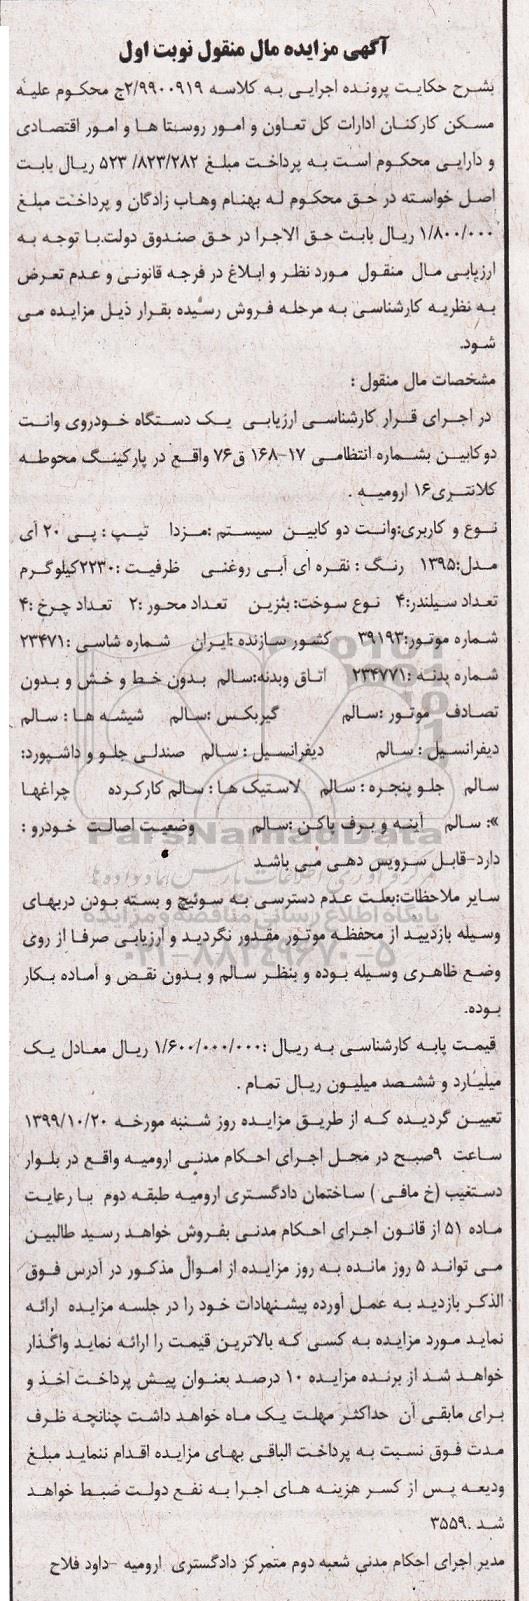 آگهی مزایده مال منقول نوبت اول
بشرح حکایت پرونده اجرایی به کلاسه ۲/۹۹۰۰۹۱۹ج محکوم علیه
مسکن کارکنان ادارات کل تعاون و امور روستا ها و امور اقتصادی
و دارایی محکوم است به پرداخت مبلغ ۵۲۳ /۸۲۳/۲۸۲ ریال بابت
اصل خواسته در حق محکوم له بهنام وهاب زادگان و پرداخت مبلغ
۱/۸۰۰/۰۰۰ ریال بابت حق الاجرا در حق صندوق دولت.با توجه به
ارزیابی مال منقول مورد نظر و ابلاغ در فرجه قانونی و عدم تعرض
به نظریه کارشناسی به مرحله فروش رسیده بقرار ذیل مزایده می
شود.
مشخصات مال منقول :
در اجرای قرار کارشناسی ارزیابی یک دستگاه خودروی وانت
دوکابین بشماره انتظامی ۱۷-۱۶۸ ق۷۶ واقع در پارکینگ محوطه
کلانتری۱۶ ارومیه .
نوع و کاربری:وانت دو کابین سیستم :مزدا تیپ : پی ۲۰ آی
مدل:۱۳۹۵ رنگ : نقره ای آبی روغنی ظرفیت :۲۲۳۰کیلوگرم
تعداد سیلندر:۴ نوع سوخت: بنزین تعداد محور :۲ تعداد چرخ :۴
شماره موتور:۳۹۱۹۳ کشور سازنده :ایران شماره شاسی :۲۳۴۷۱
شماره بدنه :۲۳۴۷۷۱ اتاق وبدنه:سالم بدون خط و خش و بدون
تصادف موتور :سالم گیربکس :سالم شیشه ها : سالم
دیفرانسیل : سالم دیفرانسیل : سالم صندلی جلو و داشپورد:
سالم جلو پنجره : سالم لاستیک ها : سالم کارکرده چراغها
»: سالم آینه و برف پاکن :سالم وضعیت اصالت خودرو :
دارد-قابل سرویس دهی می باشد
سایر ملاحظات:بعلت عدم دسترسی به سوئیچ و بسته بودن دربهای
وسیله بازدید از محفظه موتور مقدور نگردید و ارزیابی صرفا از روی
وضع ظاهری وسیله بوده و بنظر سالم و بدون نقص و آماده بکار
بوده.
قیمت پایه کارشناسی به ریال :۱/۶۰۰/۰۰۰/۰۰۰ ریال معادل یک
میلیارد و ششصد میلیون ریال تمام .
تعیین گردیده که از طریق مزایده روز شنبه مورخه ۱۳۹۹/۱۰/۲۰
ساعت ۹صبح در محل اجرای احکام مدنی ارومیه واقع در بلوار
دستغیب (خ مافی ) ساختمان دادگستری ارومیه طبقه دوم با رعایت
ماده ۵۱ از قانون اجرای احکام مدنی بفروش خواهد رسید طالبین
می تواند ۵ روز مانده به روز مزایده از اموال مذکور در آدرس فوق
الذکر بازدید به عمل آورده پیشنهادات خود را در جلسه مزایده ارائه
نماید مورد مزایده به کسی که بالاترین قیمت را ارائه نماید واگذار
خواهد شد از برنده مزایده ۱۰ درصد بعنوان پیش پرداخت اخذ و
برای مابقی آن حداکثر مهلت یک ماه خواهد داشت چنانچه ظرف
مدت فوق نسبت به پرداخت الباقی بهای مزایده اقدام ننماید مبلغ
ودیعه پس از کسر هزینه های اجرا به نفع دولت ضبط خواهد
شد .۳۵۵۹
مدیر اجرای احکام مدنی شعبه دوم متمرکز دادگستری ارومیه -داود فلاح
ParsNamadData
پایگاه اطلاع رسانی مناقصه و مزایده
۰۲۱-۸۸۳۴۹۶۷۰-۵